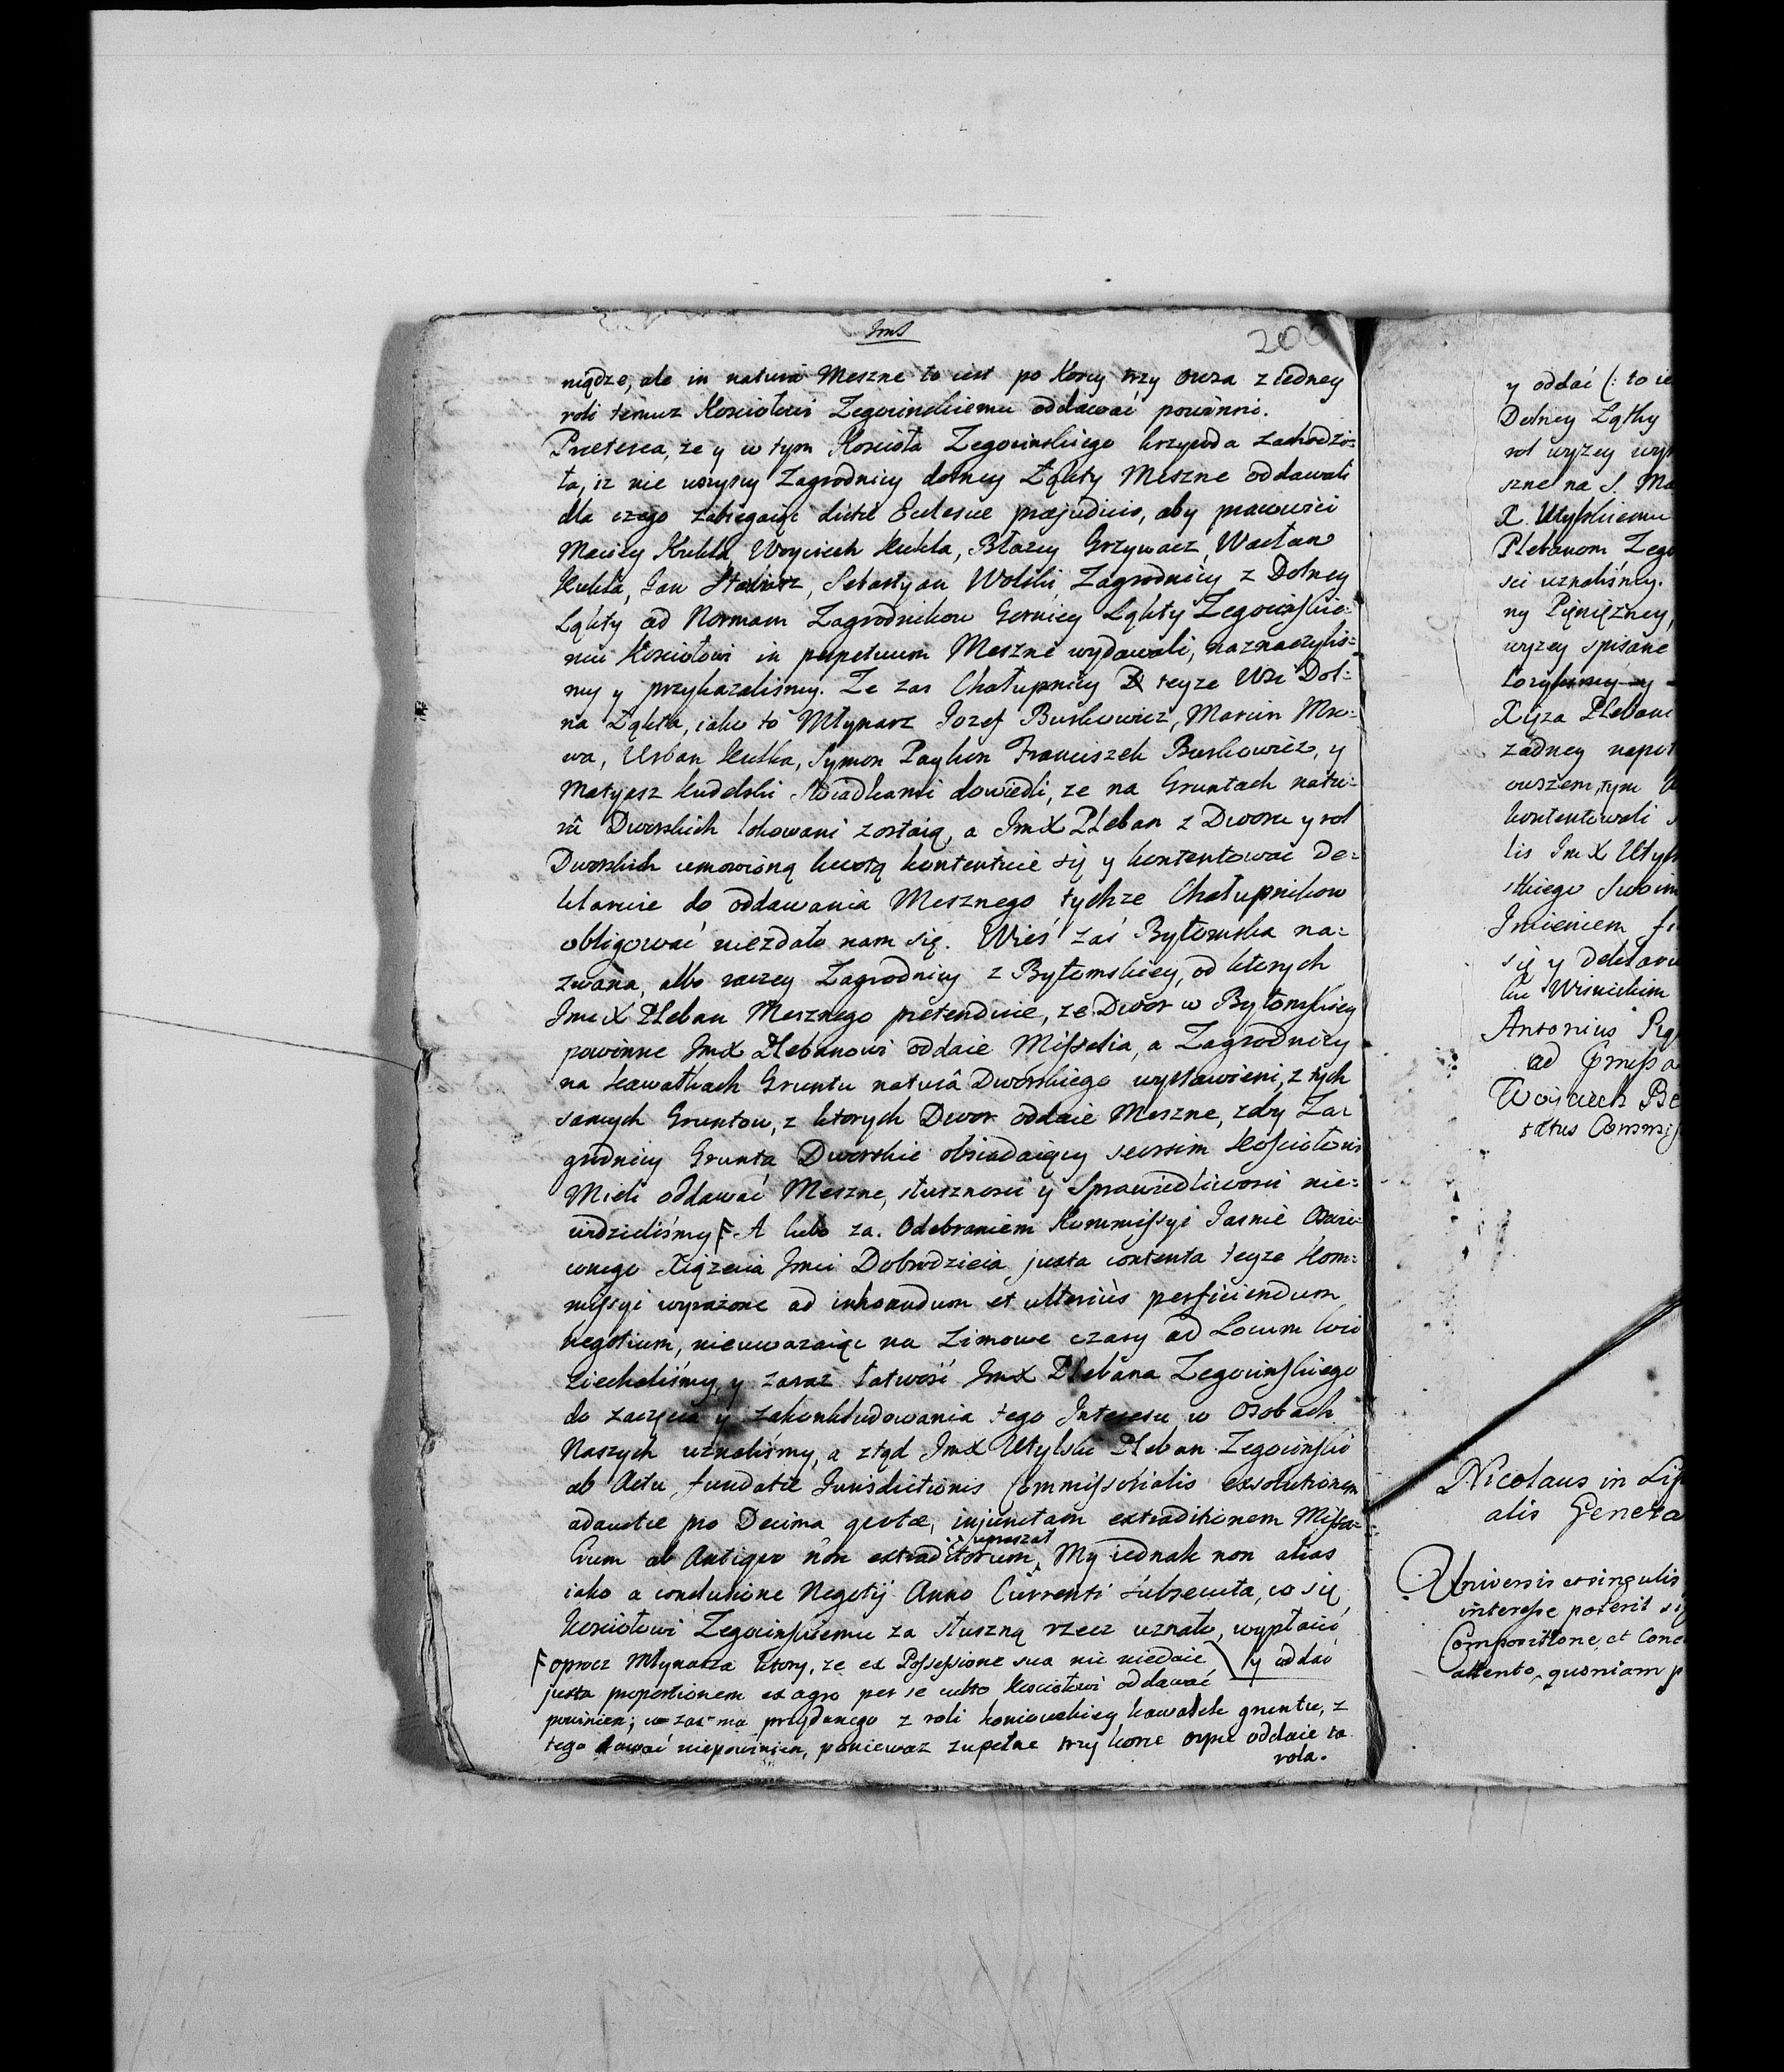 JmS
200
niądze, ale in natura Meszne to iest po Korcy trzy owsa z iedney
roli temuz Kosciołowi Zegocinskiemu oddawać powinni.
Preterea, że y w tym Koscioła Zegocinskiego krzywda zachodzi=
ła, iz nie wszyscy Zagrodnicy dolney Łąkty Meszne oddawali
dla czego zabiegaiąc dictæ Eclesiæ præjudicio, aby pracowici
Maciey Kukla, Woyciech Kukla, Błazey Grzywacz, Wacław
Kukla, Jan Sebastyan Wolski, Zagrodnicy z Dolney
Łąkty ad Normam Zagrodnikow Gorniey Łąkty Zegocinskie=
mu Kosciołowi in perpetuum Meszne wydawali, naznaczylis=
my y przykazalismy. Ze zas Chałupnicy teyze Wsi Dol=
na Łąkta, iako to Młynarz Jozef Burkowicz, Marcin Mro=
wa, Urban Kukla, Symon Paykon Franciszek Burkowicz, y
Matyasz Kudelski Swiadkami dowiedli, ze na Gruntach natu=
râ Dworskich lokowani zostaią, a JmX Pleban z Dworu y rol
Dworskich umowioną kwotą kontentuie się y kontentować de=
klaruie do oddawania Mesznego tychze Chałupnikow
obligować niezdało nam się. Wieś zaś Bytomska na=
zwana, albo raczey Zagrodnicy z Bytomskiey, od ktorych
JmX Pleban Mesznego pretenduie, ze Dwor w Bytomskiey
powinne JmX Plebanowi oddaie Missalia, a Zagrodnicy
na kawałkach Gruntu naturâ Dworskiego wystawieni, z tych
samych Gruntow, z ktorych Dwor oddaie Meszne, zeby Za=
grodnicy Grunta Dworskie obsiadaiący seorsim Kosciołowi
Mieli oddawać Meszne, słusznosci y Sprawiedliwosci nie=
widzieliśmy F A lubo za. Odebraniem Kommissyi Jasnie Oswie=
conego Xiązecia Jmci Dobrodzieia juxta contenta teyze Kom=
missyi wyrazone ad inhoandum et ulterius perficiendum
negotium, nieuwazaiąc na Zimowe czasy ad Locum loci
ziechaliśmy, y zaraz łatwość JmX Plebana Zegocinskiego
do zaczęcia y zakonkludowania tego Interesu w Osobach
Naszych uznaliśmy, a ztąd JmX Utylski Pleban Zegocinski
ab Actu fundatæ Jurisdictionis Commissorialis exsolutionem
adauctæ pro Decima qvotæ, injunctam extraditionem Missa=
lium ab Antiqvo non extraditorum, upraszał My iednak non alias
iako a conclusione Negotij Anno Currenti subsecuta, co się
Kosciołowi Zegocinskiemu za słuszną rzecz uznało, wypłacić
y oddać
F oprocz Młynarza ktory, ze ex Possessione sua nic niedaie
juxta proportionem ex agro per se culto Kosciołowi oddawać
powinien; zas ma przydanego z roli koniowskiey kawałek gruntu, z
tego dawać niepowinien, poniewaz zupełne trzy korce ospu oddaie ta
rola.
y oddać (: to ie
Dolney Łąkty
rol wyzey wyr
szne na S. Ma
X. Utylskiemu
Plebanom Zego
sci uznaliśmy.
ny Pięnięzney,
wyzey spisane
Xięza Plebani
zadney napot
owszem, tym
kontentowali
lis JmX Utyls
skiego Swoim
Jmieniem
się y deklaru
ku Wisnickim
Antonius
ad
Woyciech Be
tatus Commis
Nicolaus in Lip
alis Genera
Universis et singulis
interesse poterit
Compositione, et Conc
attento, quoniam p